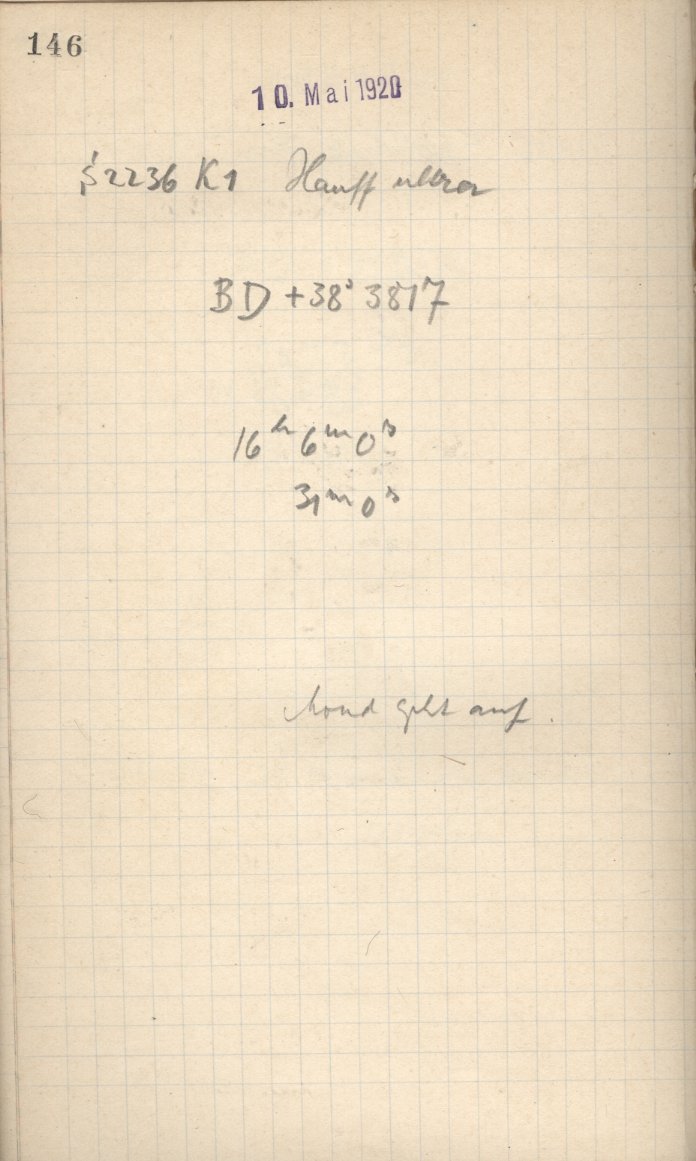 146
10. Mai 1920
S 2236 K1 Hauff ultra
BD +38° 3817
16ʰ 6ᵐ 0ˢ
31ᵐ 0ˢ
Mond geht auf.